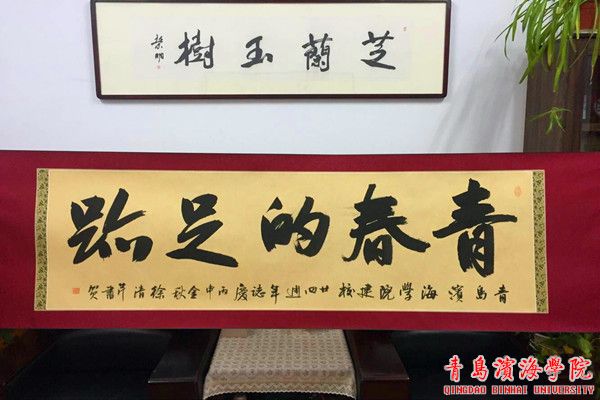 芝蘭玉樹
青春的足跡
青島濱海學院建校廿四週年誌慶丙申金秋徐清芹書賀
青島濱海學院
QINGDAO BINHAI UNIVERSITY